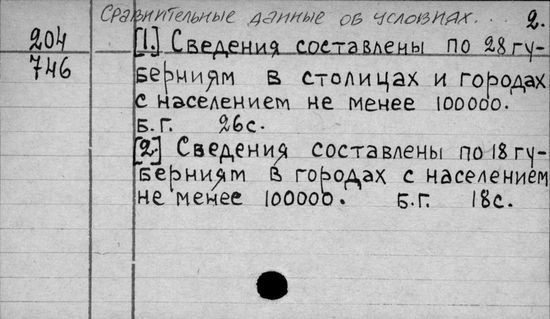 Сравнительные данные об условиях... 2.
204
746
[1.] Сведения составлены по 28 гу-
берниям в столицах и городах
с населением не менее 100000.
Б.Г. 26с.
[2.] Сведения составлены по 18 гу-
берниям в городах с населением
не менее 100000. Б.Г. 18с.